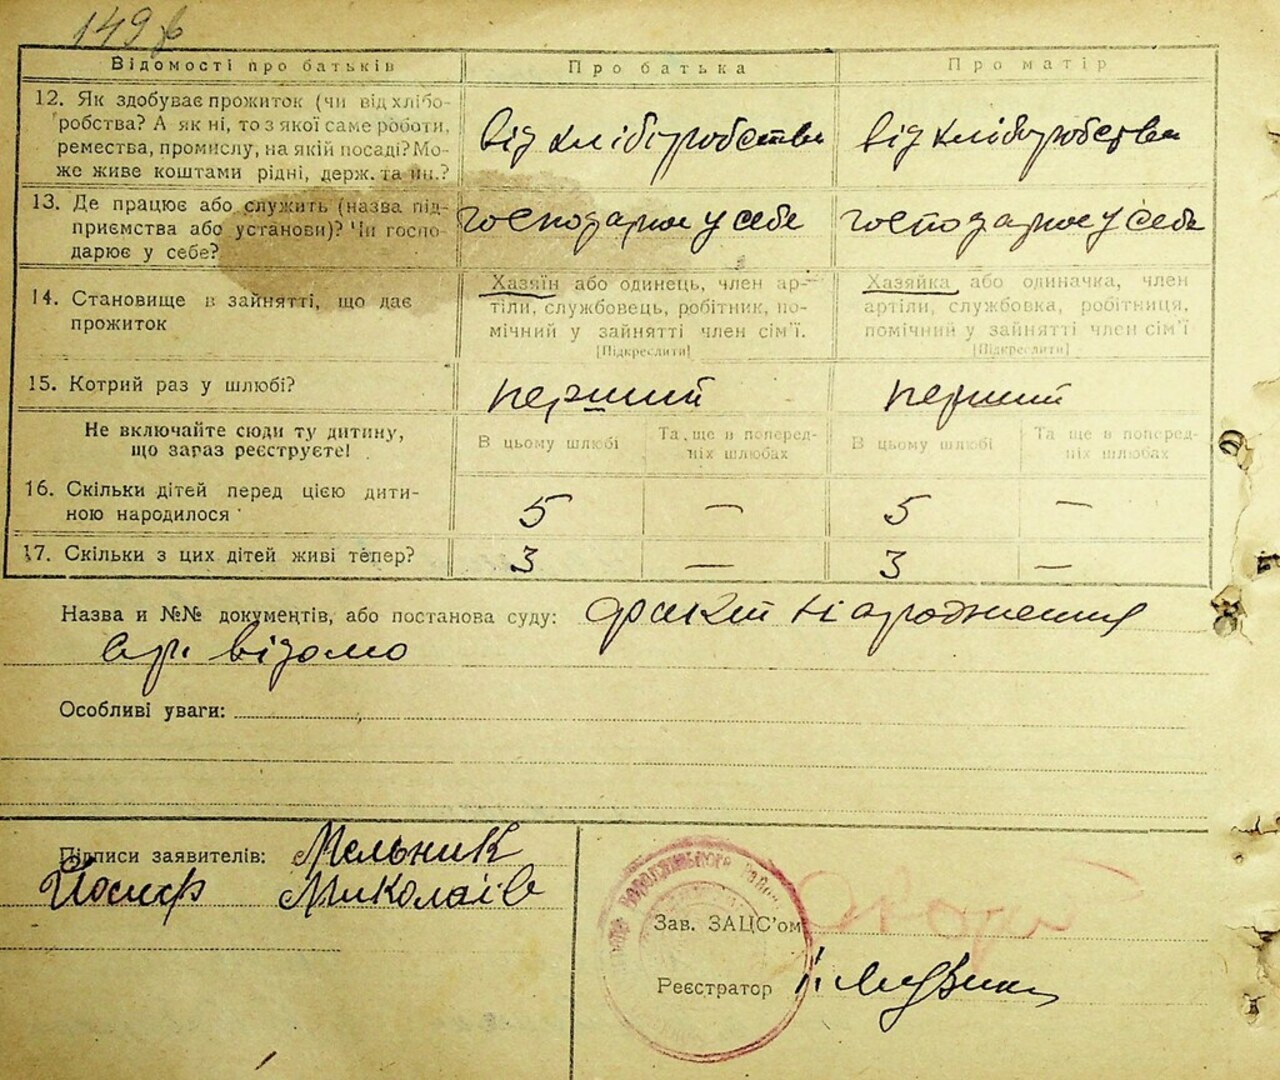 149 зв
Відомості про батьків
Про батька
Про матір
12. Як здобуває прожиток (чи від хлібо-
робства? А як ні, то з якої саме роботи,
ремества, промислу, на якій посаді? Мо-
же живе коштами рідні, держ. та ин.?
від хліборобства
від хліборобства
13. Де працює або служить (назва під-
приємства або установи)? Чи госпо-
дарює у себе?
господарює у себе
господарює у себе
14. Становище в зайнятті, що дає
прожиток
Хазяїн або одинець, член ар-
тіли, службовець, робітник, по-
мічний у зайнятті член сім'ї.
[Підкреслити]
Хазяйка або одиначка, член
артіли, службовка, робітниця,
помічний у зайнятті член сім'ї
[Підкреслити]
15. Котрий раз у шлюбі?
перший
перший
Не включайте сюди ту дитину,
що зараз реєструєте!
В цьому шлюбі
Та ще в поперед-
ніх шлюбах
В цьому шлюбі
Та ще в поперед-
ніх шлюбах
16. Скільки дітей перед цією дити-
ною народилося
5 —
5 —
17. Скільки з цих дітей живі тепер?
3 —
3 —
Назва и №№ документів, або постанова суду: факт народження
відомо
Особливі уваги:
Підписи заявителів: Мельник
Йосиф Миколаїв
Зав. ЗАЦС'ом
Реєстратор